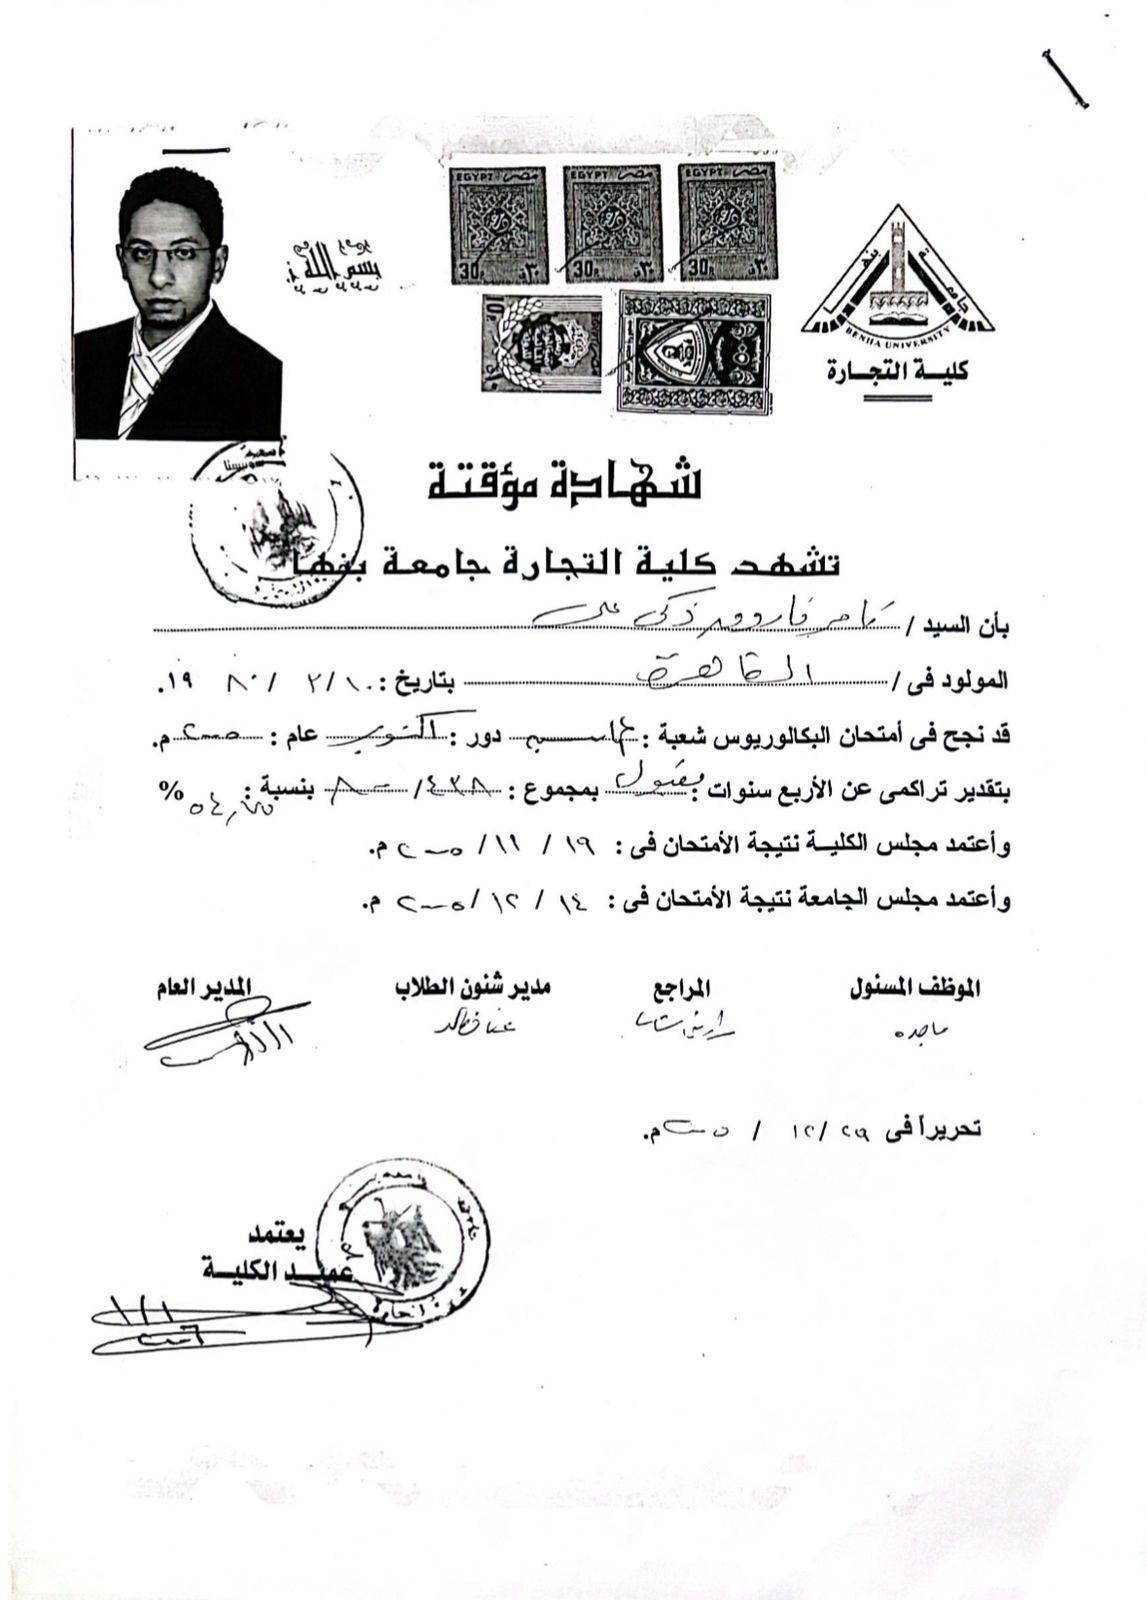 EGYPT مصر
30P ٣٠ق
EGYPT مصر
30P ٣٠ق
EGYPT مصر
30P ٣٠ق
جامعة بنها
BENHA UNIVERSITY
كلية التجارة
بسم الله
شهادة مؤقتة
تشهد كلية التجارة جامعة بنها
بأن السيد / تامر فاروق زكى على
المولود فى / القاهرة بتاريخ : ١٠/ ٢/ ١٩٨٠.
قد نجح فى أمتحان البكالوريوس شعبة : محاسبة دور : اكتوبر عام : ٢٠٠٥ م.
بتقدير تراكمى عن الأربع سنوات : مقبول بمجموع : ٤٣٨/ ٨٠٠ بنسبة : ٥٤,٧٥ %
وأعتمد مجلس الكلية نتيجة الأمتحان فى : ١٩ / ١١ / ٢٠٠٥ م.
وأعتمد مجلس الجامعة نتيجة الأمتحان فى : ١٤ / ١٢ / ٢٠٠٥ م.
الموظف المسئول المراجع مدير شئون الطلاب المدير العام
ماجده
تحريراً فى ٢٩/ ١٢ / ٢٠٠٥ م.
يعتمد
عميد الكلية